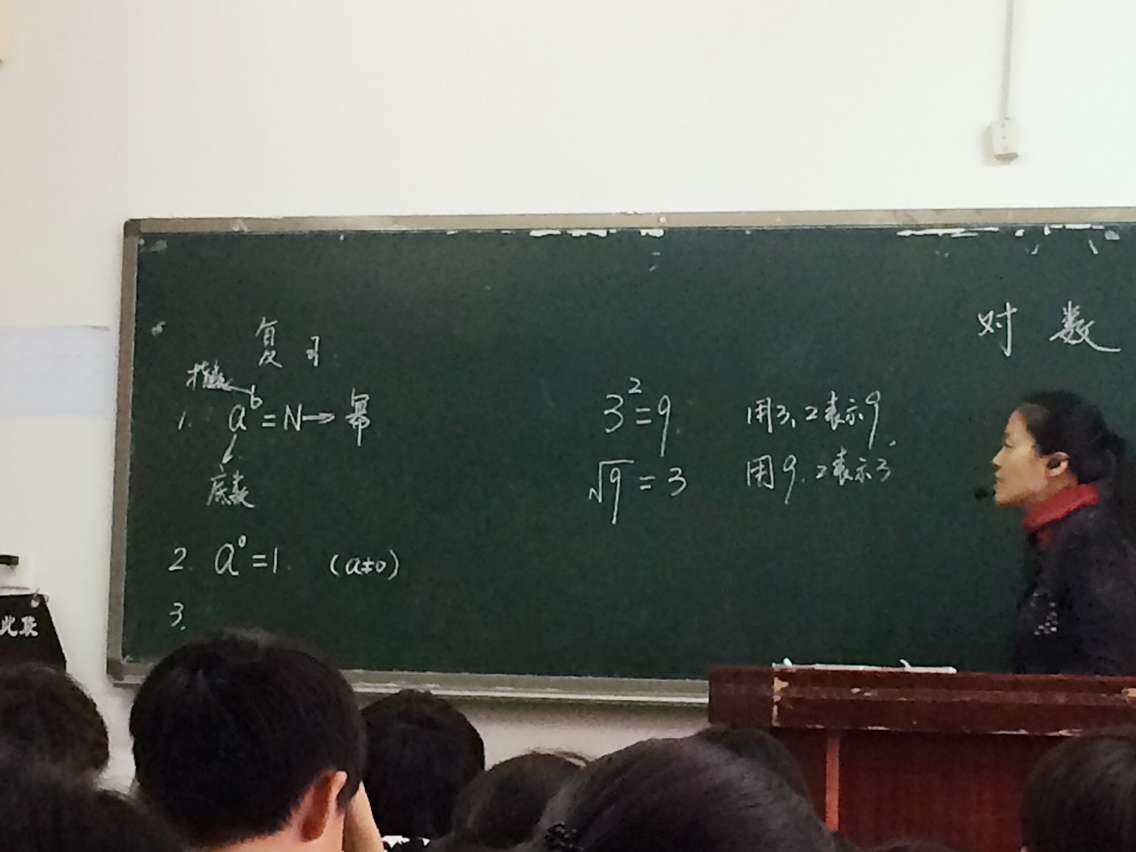 对数
复习
指数
1. a^b = N → 幂
底数
2. a^0 = 1. (a≠0)
3.
3^2 = 9 用3、2表示9.
√9 = 3 用9、2表示3
此联